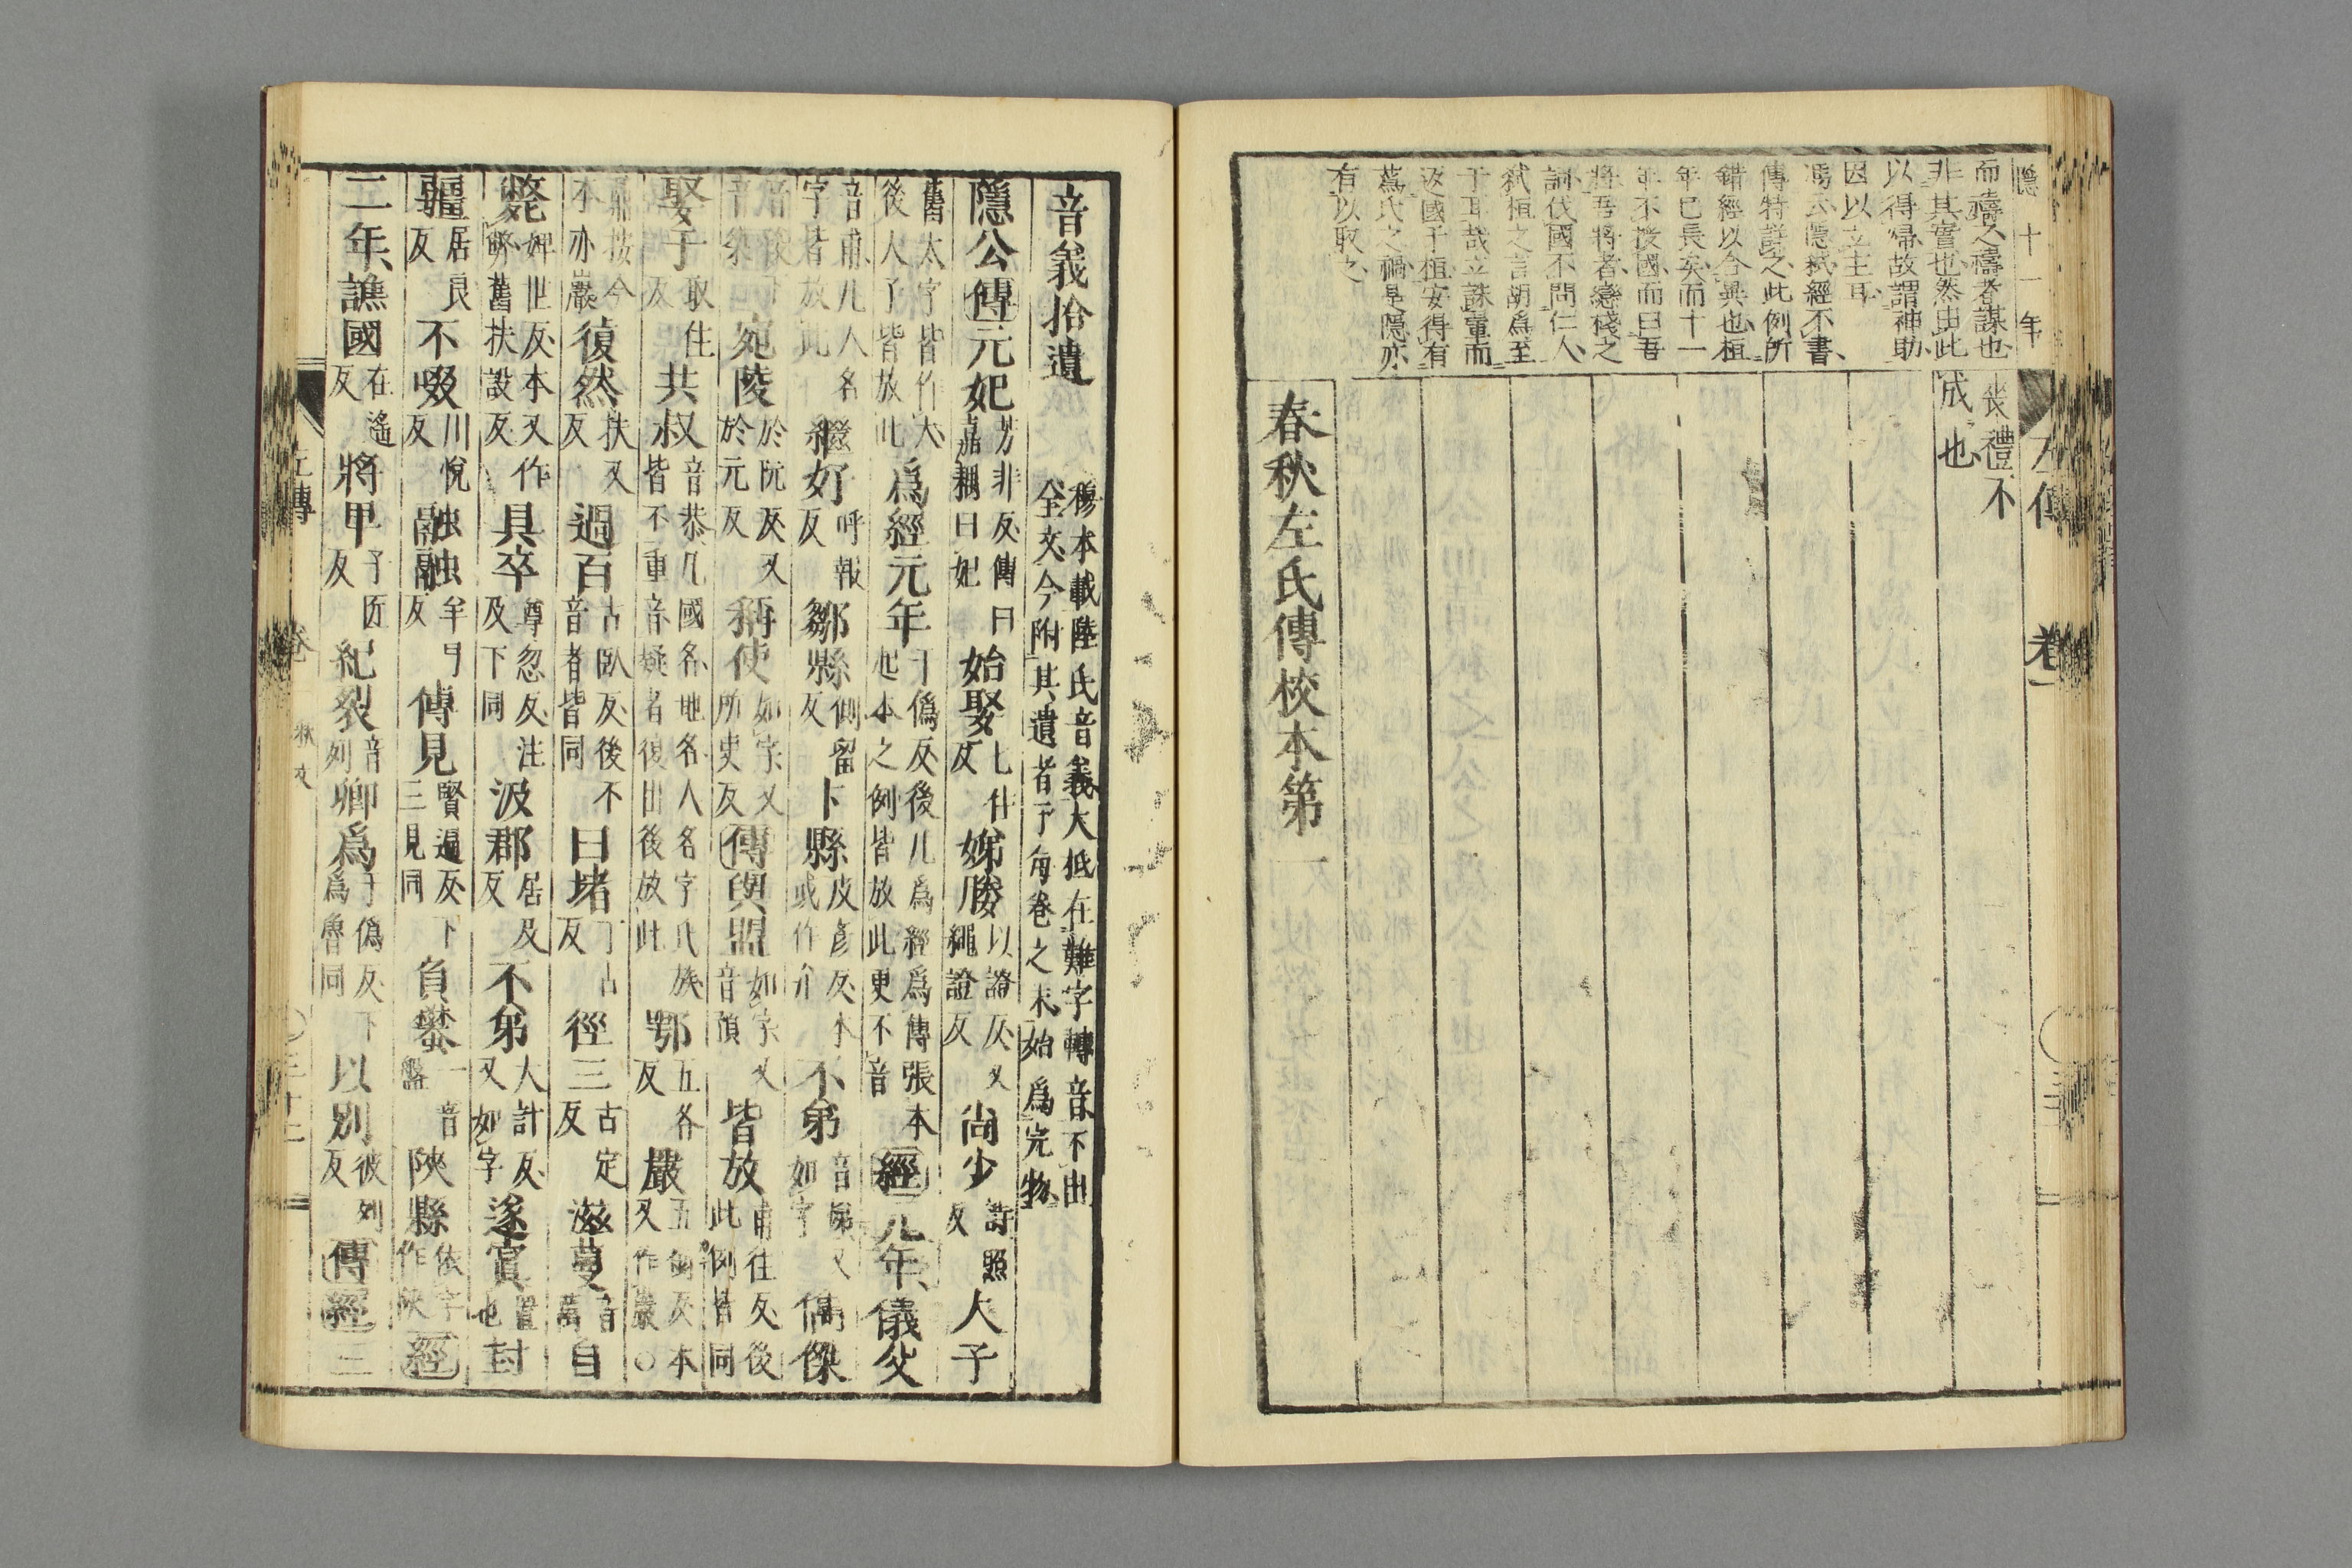 隱十一年
而禱之禱者謀也
非其實也然由此
以得歸故謂神助
因以立主耳
馮云隱弑經不書
傳特詳之此例所
錯經以合異也桓
年已長矣而十一
年不授國而曰吾
將吾將者戀棧之
詞伐國不問仁人
弑桓之言胡爲至
于耳哉立誅翬而
返國于桓安得有
蔿氏之禍是隱亦
有以取之
左傳 卷一
喪禮不
成也
春秋左氏傳校本第一
音義拾遺
穆本載陸氏音義大抵在難字轉音不由
全文今附其遺者于每卷之末始爲完物
隱公傳元妃芳非反傳曰嘉耦曰妃始娶七住反娣媵以證反又繩證反尚少詩照反大子
舊太字皆作大後人了皆放此爲經元年于僞反後凡爲經爲傳張本起本之例皆放此更不音經元年儀父
音甫凡人名字皆放此繼好呼報反鄒縣側留反卞縣皮彥反本或作弁不弟音娣又如字儁傑
音俊音桀宛陵於阮反又於元反稱使如字又所吏反傳與盟如字又音預皆放甫往反後此例皆同
娶于取住反共叔音恭凡國名地名人名字氏族皆不重音疑者復出後放此鄂五各反巖五銜反本又作嚴〇
鼎按今本亦巖復然扶又反過百古臥反後不音者皆同曰堵丁古反徑三古定反滋蔓音萬自
斃婢世反本又作弊舊扶設反具卒尊忽反注及下同汲郡居及反不弟大計反又如字遂寘置也封
疆居良反不啜川悅反融融羊弓反傳見賢遍反下三見同負蠜一音盤陝縣依字作陝經
二年譙國在遙反將甲子匠反紀裂音列卿爲于僞反下爲魯同以別彼列反傳經三
左傳 卷 〇三十二